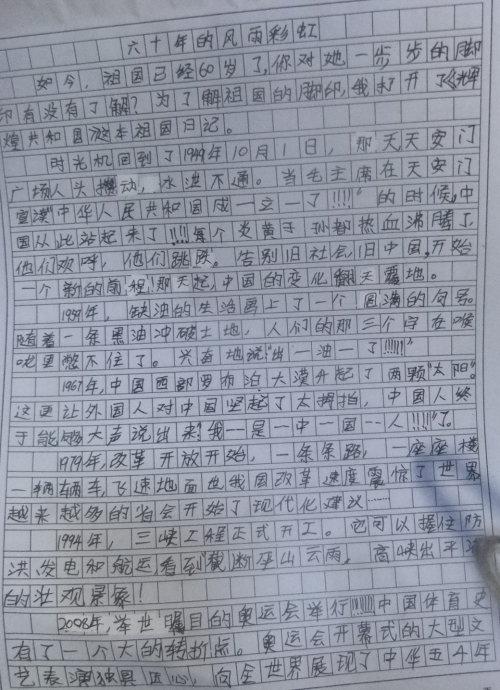 六十年的风雨彩虹
如今，祖国已经60岁了，你对她一步步的脚
印有没有了解？为了解祖国的脚印，我打开了《辉
煌共和国》这本祖国日记。
时光机回到了1949年10月1日，那天天安门
广场人头攒动，水泄不通。当毛主席在天安门
宣读"中华人民共和国成—立—了!!!!"的时候，中
国从此站起来了!!!!每个炎黄子孙都热血沸腾了，
他们欢呼，他们跳跃。告别旧社会，旧中国，开始
一个新的前程！那天起，中国的变化翻天覆地。
1959年，缺油的生活画上了一个圆满的句号。
随着一条黑油冲破土地，人们的那三个字在喉
咙里憋不住了。兴奋地说"出—油—了!!!!!"
1967年，中国西部罗布泊大漠升起了两颗"太阳"。
这更让外国人对中国竖起了大拇指，中国人终
于能够大声说出来！我—是—中—国—人!!!!"了。
1979年，改革开放开始，一条条路，一座座楼
一辆辆车，飞速地面世我国改革速度震惊了世界
越来越多的省会开始了现代化建议……
1994年，三峡工程正式开工。它可以握住防
洪、发电和航运，看到"截断巫山云雨，高峡出平湖"
的壮观景象！
2008年，举世瞩目的奥运会举行!!!!!中国体育史
有了一个大的转折点。奥运会开幕式的大型文
艺表演独具匠心，向全世界展现了中华五千年